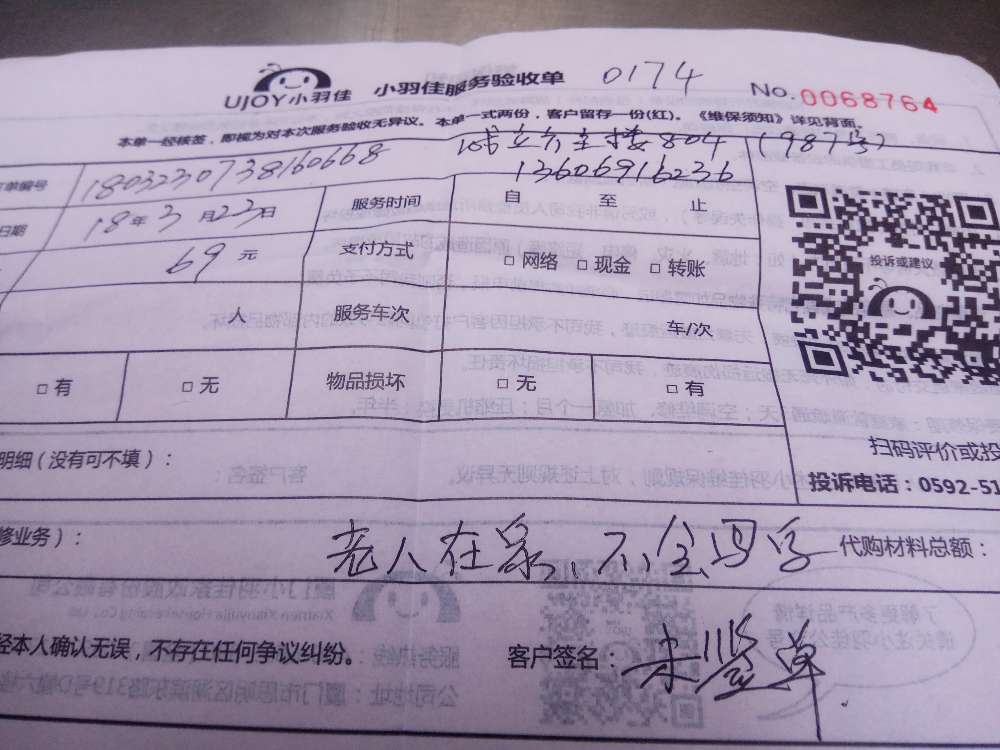 UJOY小羽佳 小羽佳服务验收单 0174 No.0068764
本单一经核签，即视为对本次服务验收无异议。本单一式两份，客户留存一份(红)。《维保须知》详见背面。
804 (987号)
单编号 1803230738160668 13606916236
日期 18年3月23日 服务时间 自 至 止
69元 支付方式 □ 网络 □ 现金 □ 转账
投诉或建议
人 服务车次 车/次
□ 有 □ 无 物品损坏 □ 无 □ 有
明细（没有可不填）： 扫码评价或投
投诉电话：0592-51
修业务）： 老人在家、不会写字 代购材料总额：
经本人确认无误，不存在任何争议纠纷。 客户签名：未签单